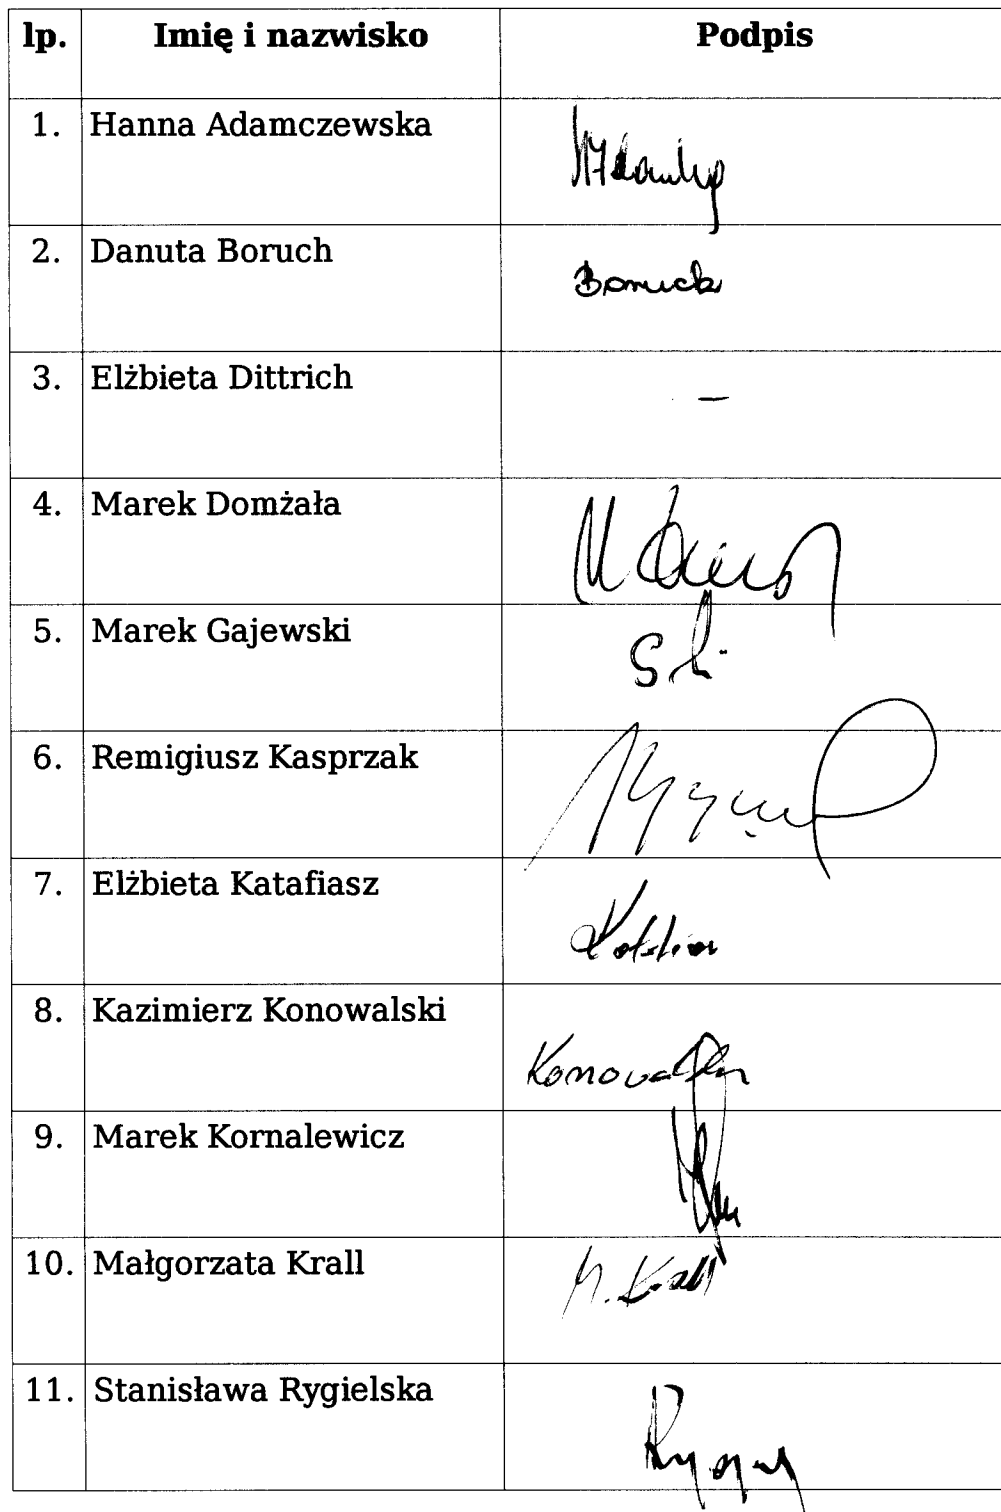 lp. Imię i nazwisko Podpis
1. Hanna Adamczewska
2. Danuta Boruch Boruch
3. Elżbieta Dittrich –
4. Marek Domżała
5. Marek Gajewski
6. Remigiusz Kasprzak
7. Elżbieta Katafiasz
8. Kazimierz Konowalski
9. Marek Kornalewicz
10. Małgorzata Krall M. Krall
11. Stanisława Rygielska